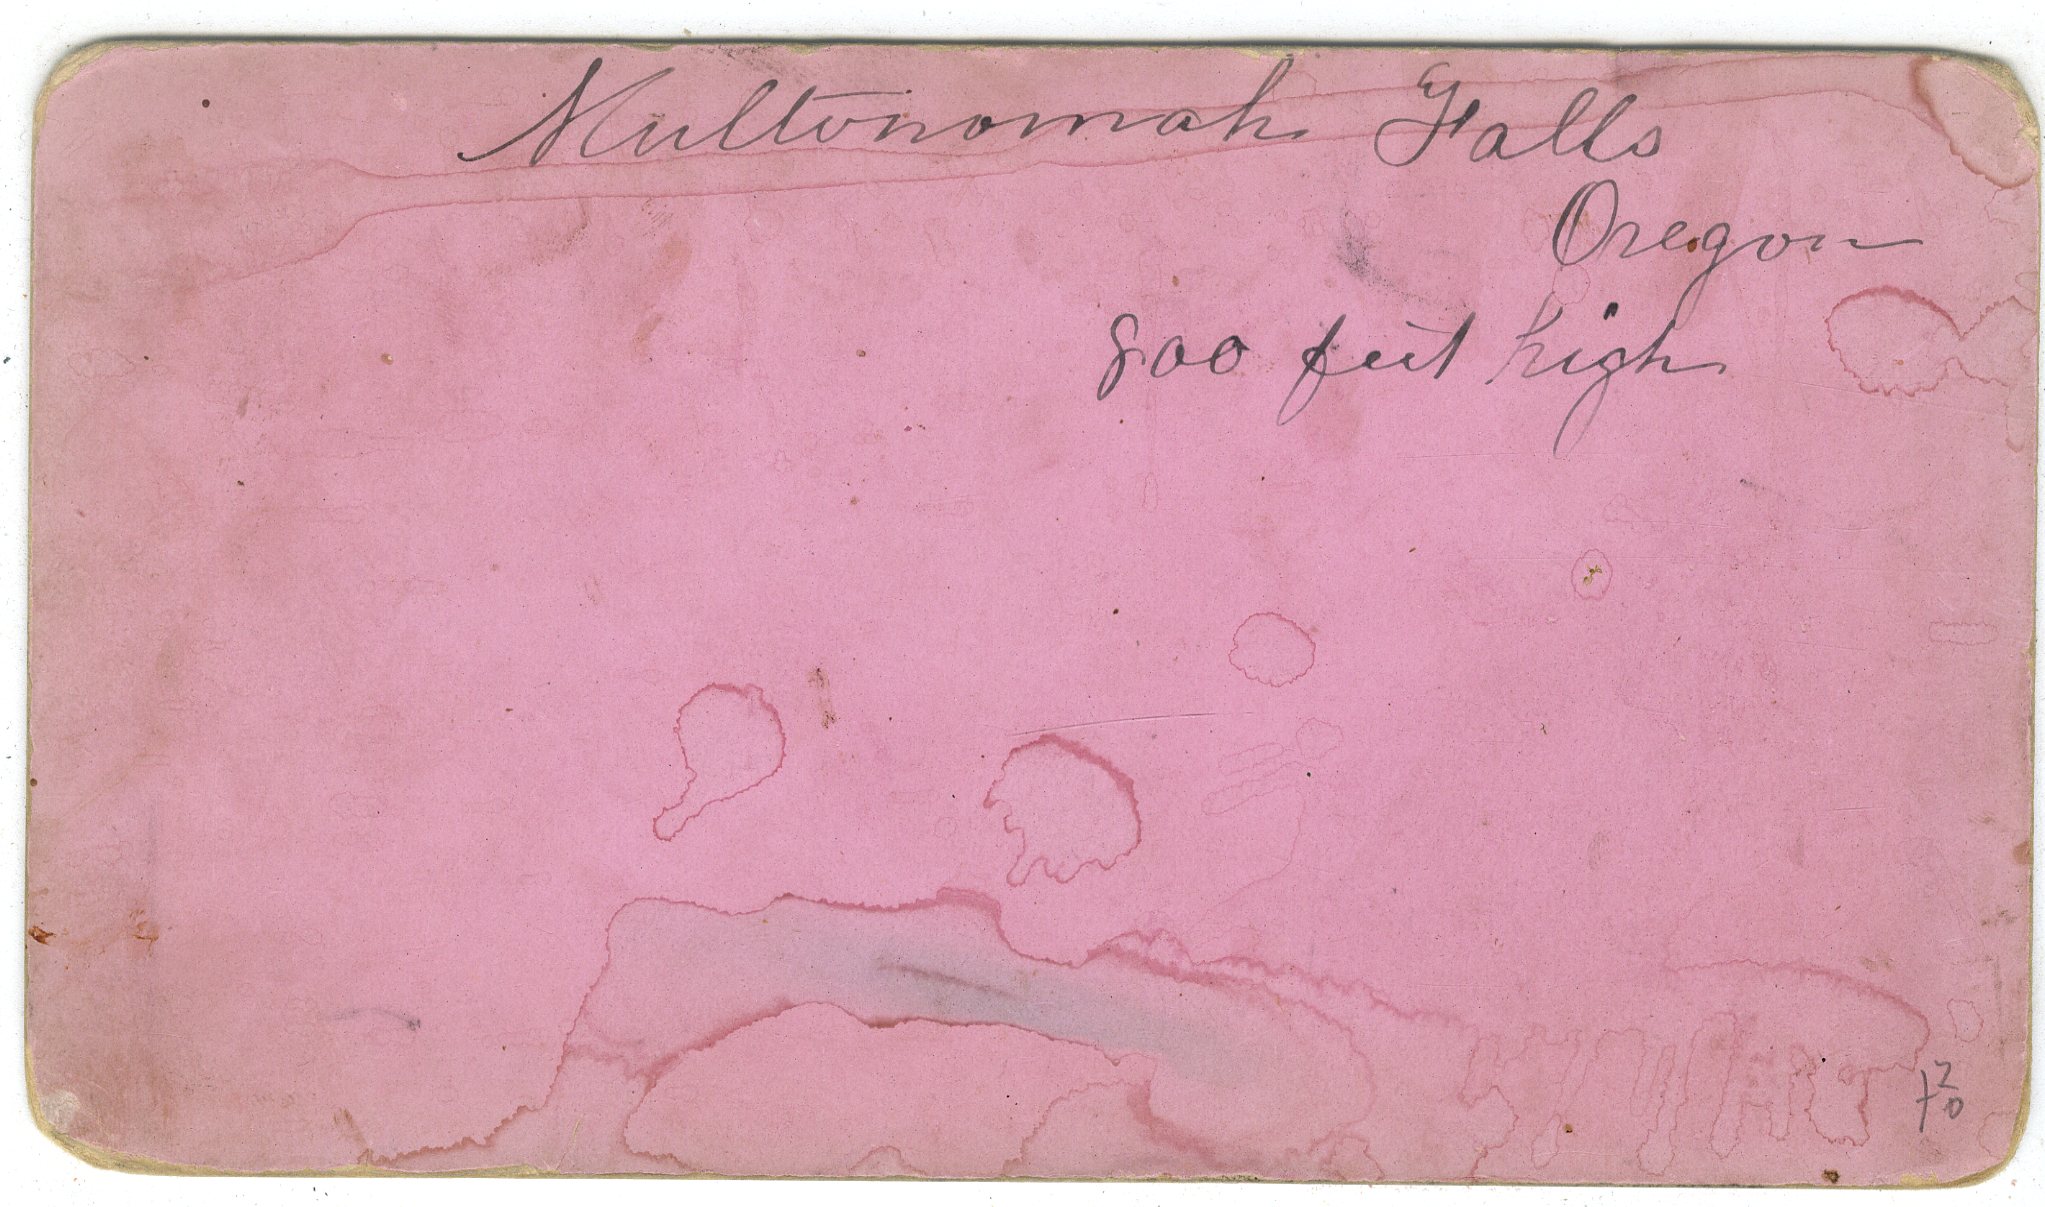 Multonomah Falls
Oregon
800 feet high